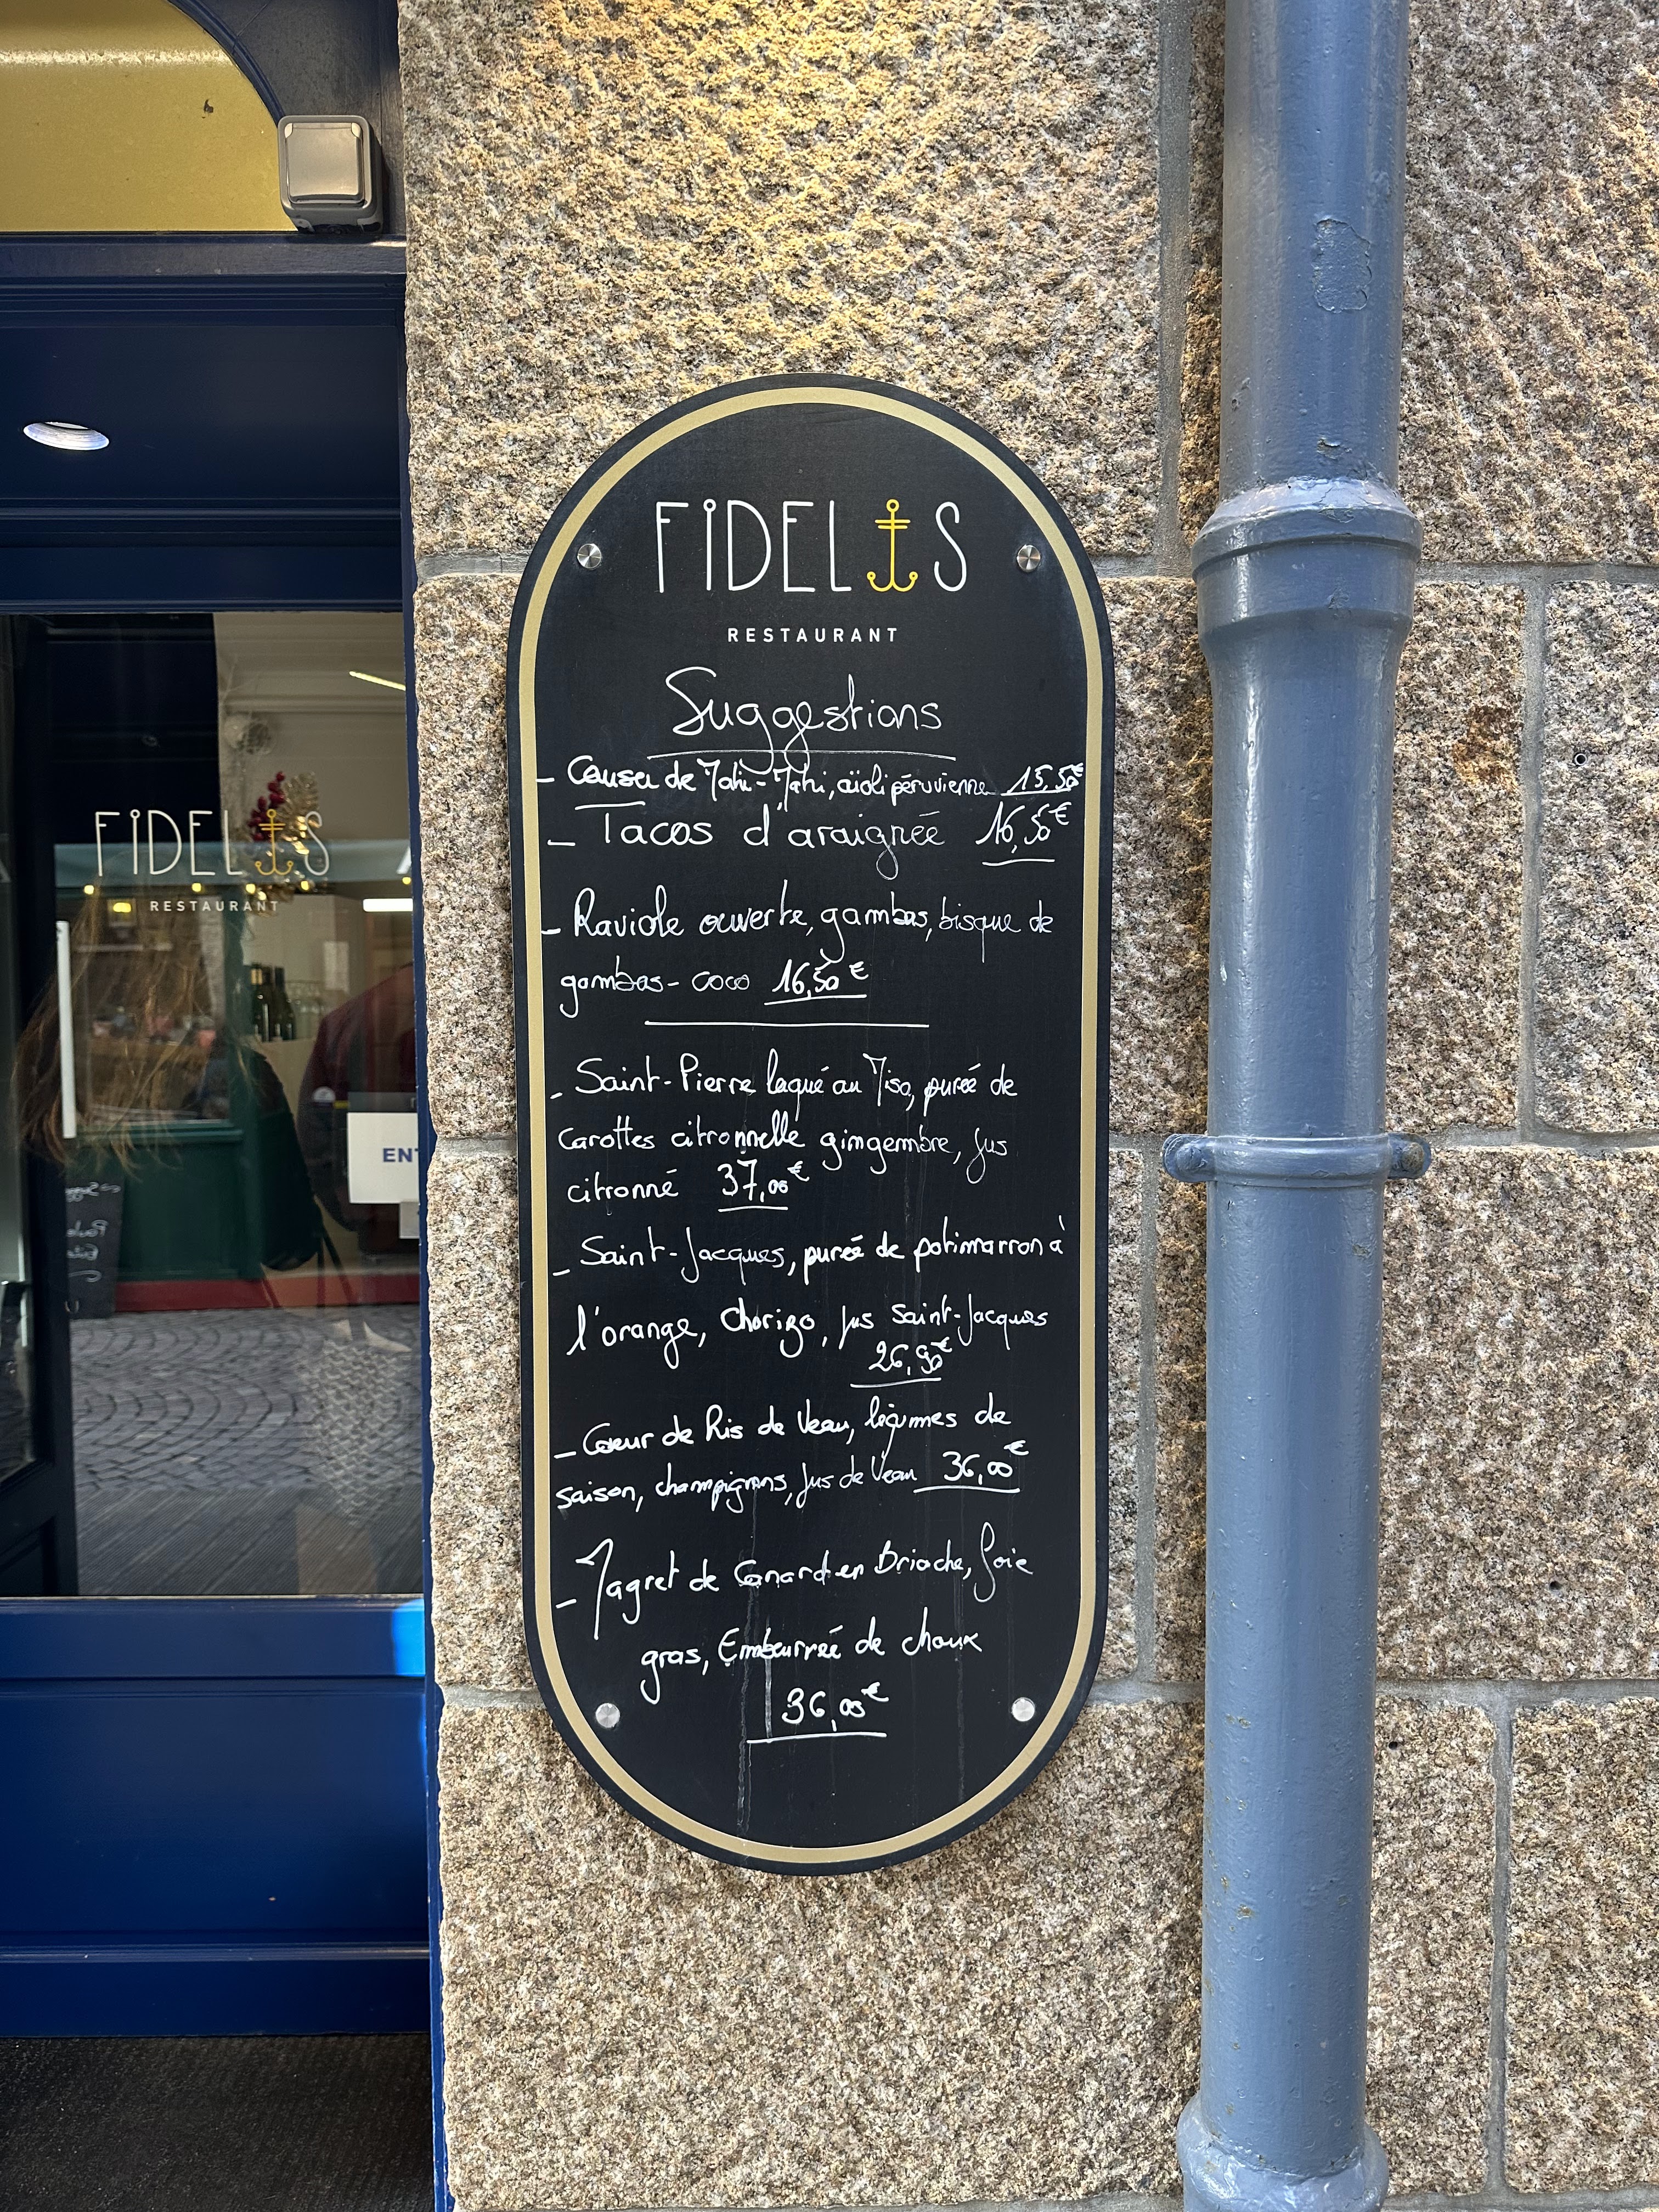 FiDELIS
RESTAURANT
Suggestions
- Causa de Mahi-Mahi, aïoli péruvienne 15,50€
- Tacos d'araignée 16,50€
- Raviole ouverte, gambas, bisque de
gambas - coco 16,50€
- Saint-Pierre laqué au Miso, purée de
carottes citronnelle gingembre, jus
citronné 37,00€
- Saint-Jacques, purée de potimarron à
l'orange, Chorizo, jus Saint-Jacques
26,90€
- Coeur de Ris de Veau, légumes de
saison, champignons, jus de Veau 36,00€
- Magret de Canard en Brioche, foie
gras, Embeurrée de choux
36,00€
FiDELIS
RESTAURANT
ENT